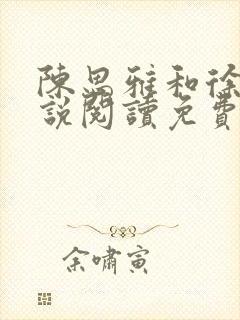 陳思雅和徐
說閱讀免費
余嘯寅